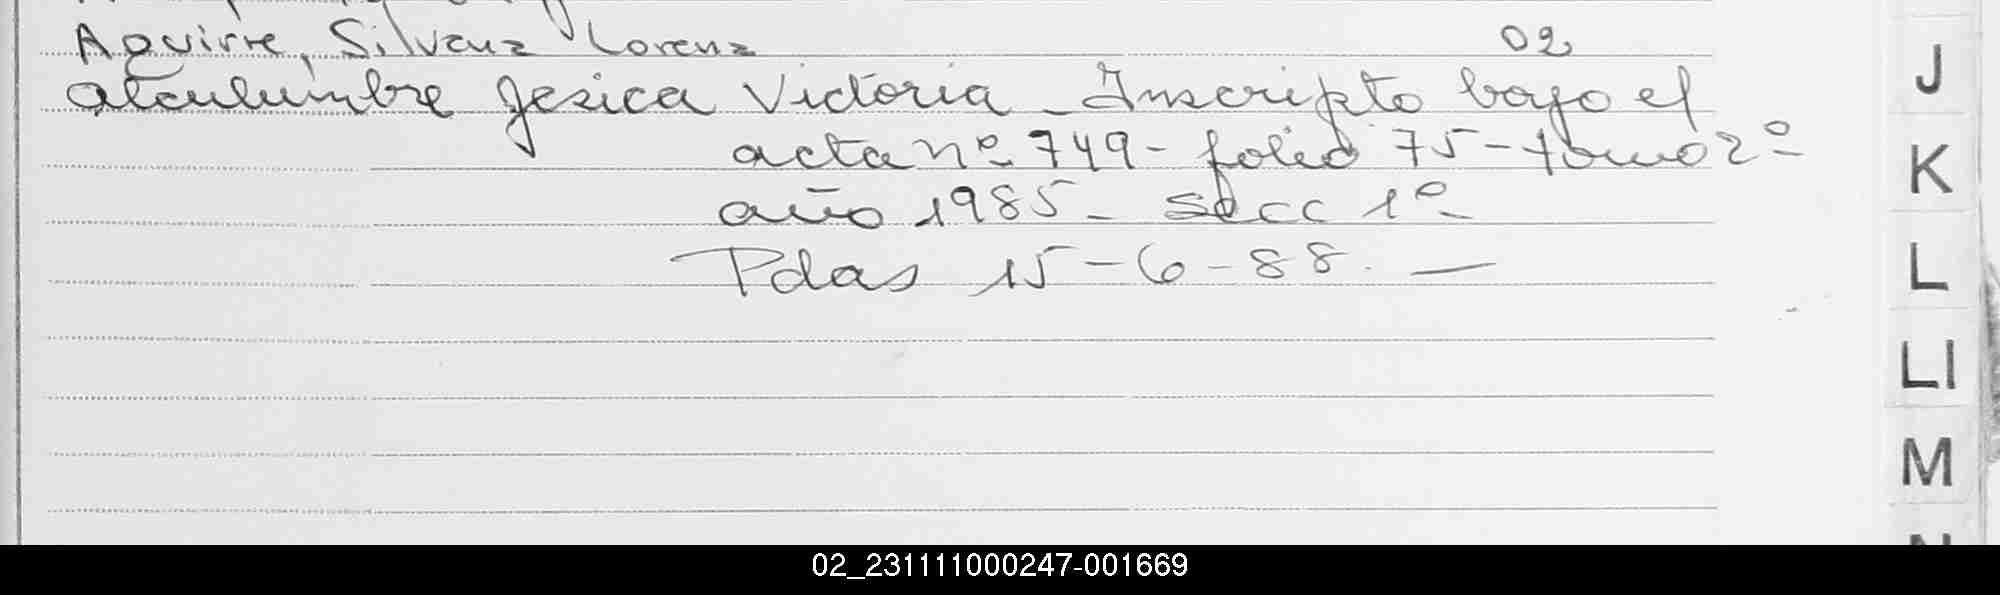 Aguirre, Silvana Lorena 02
Jesica Victoria - Inscripto bajo el
acta nº 749 - folio 75 - tomo 2º
año 1985 - secc 1º
Pdas 15-6-88. —
J
K
L
Ll
M
02_231111000247-001669